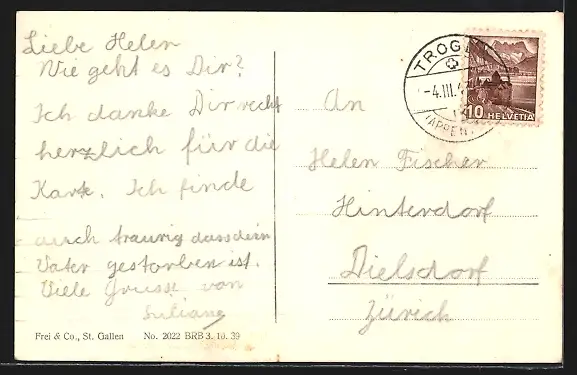 Liebe Helen
Wie geht es Dir?
Ich danke Dir recht
herzlich für die
Karte. Ich finde
auch traurig dass dein
Vater gestorben ist.
Viele Grüsse von
Liliane
Frei & Co., St. Gallen No. 2022 BRB 3. 10. 39
TROGEN
-4.III.4
(APPENZ
10 HELVETIA
An
Helen Fischer
Hinterdorf
Dielsdorf
Zürich